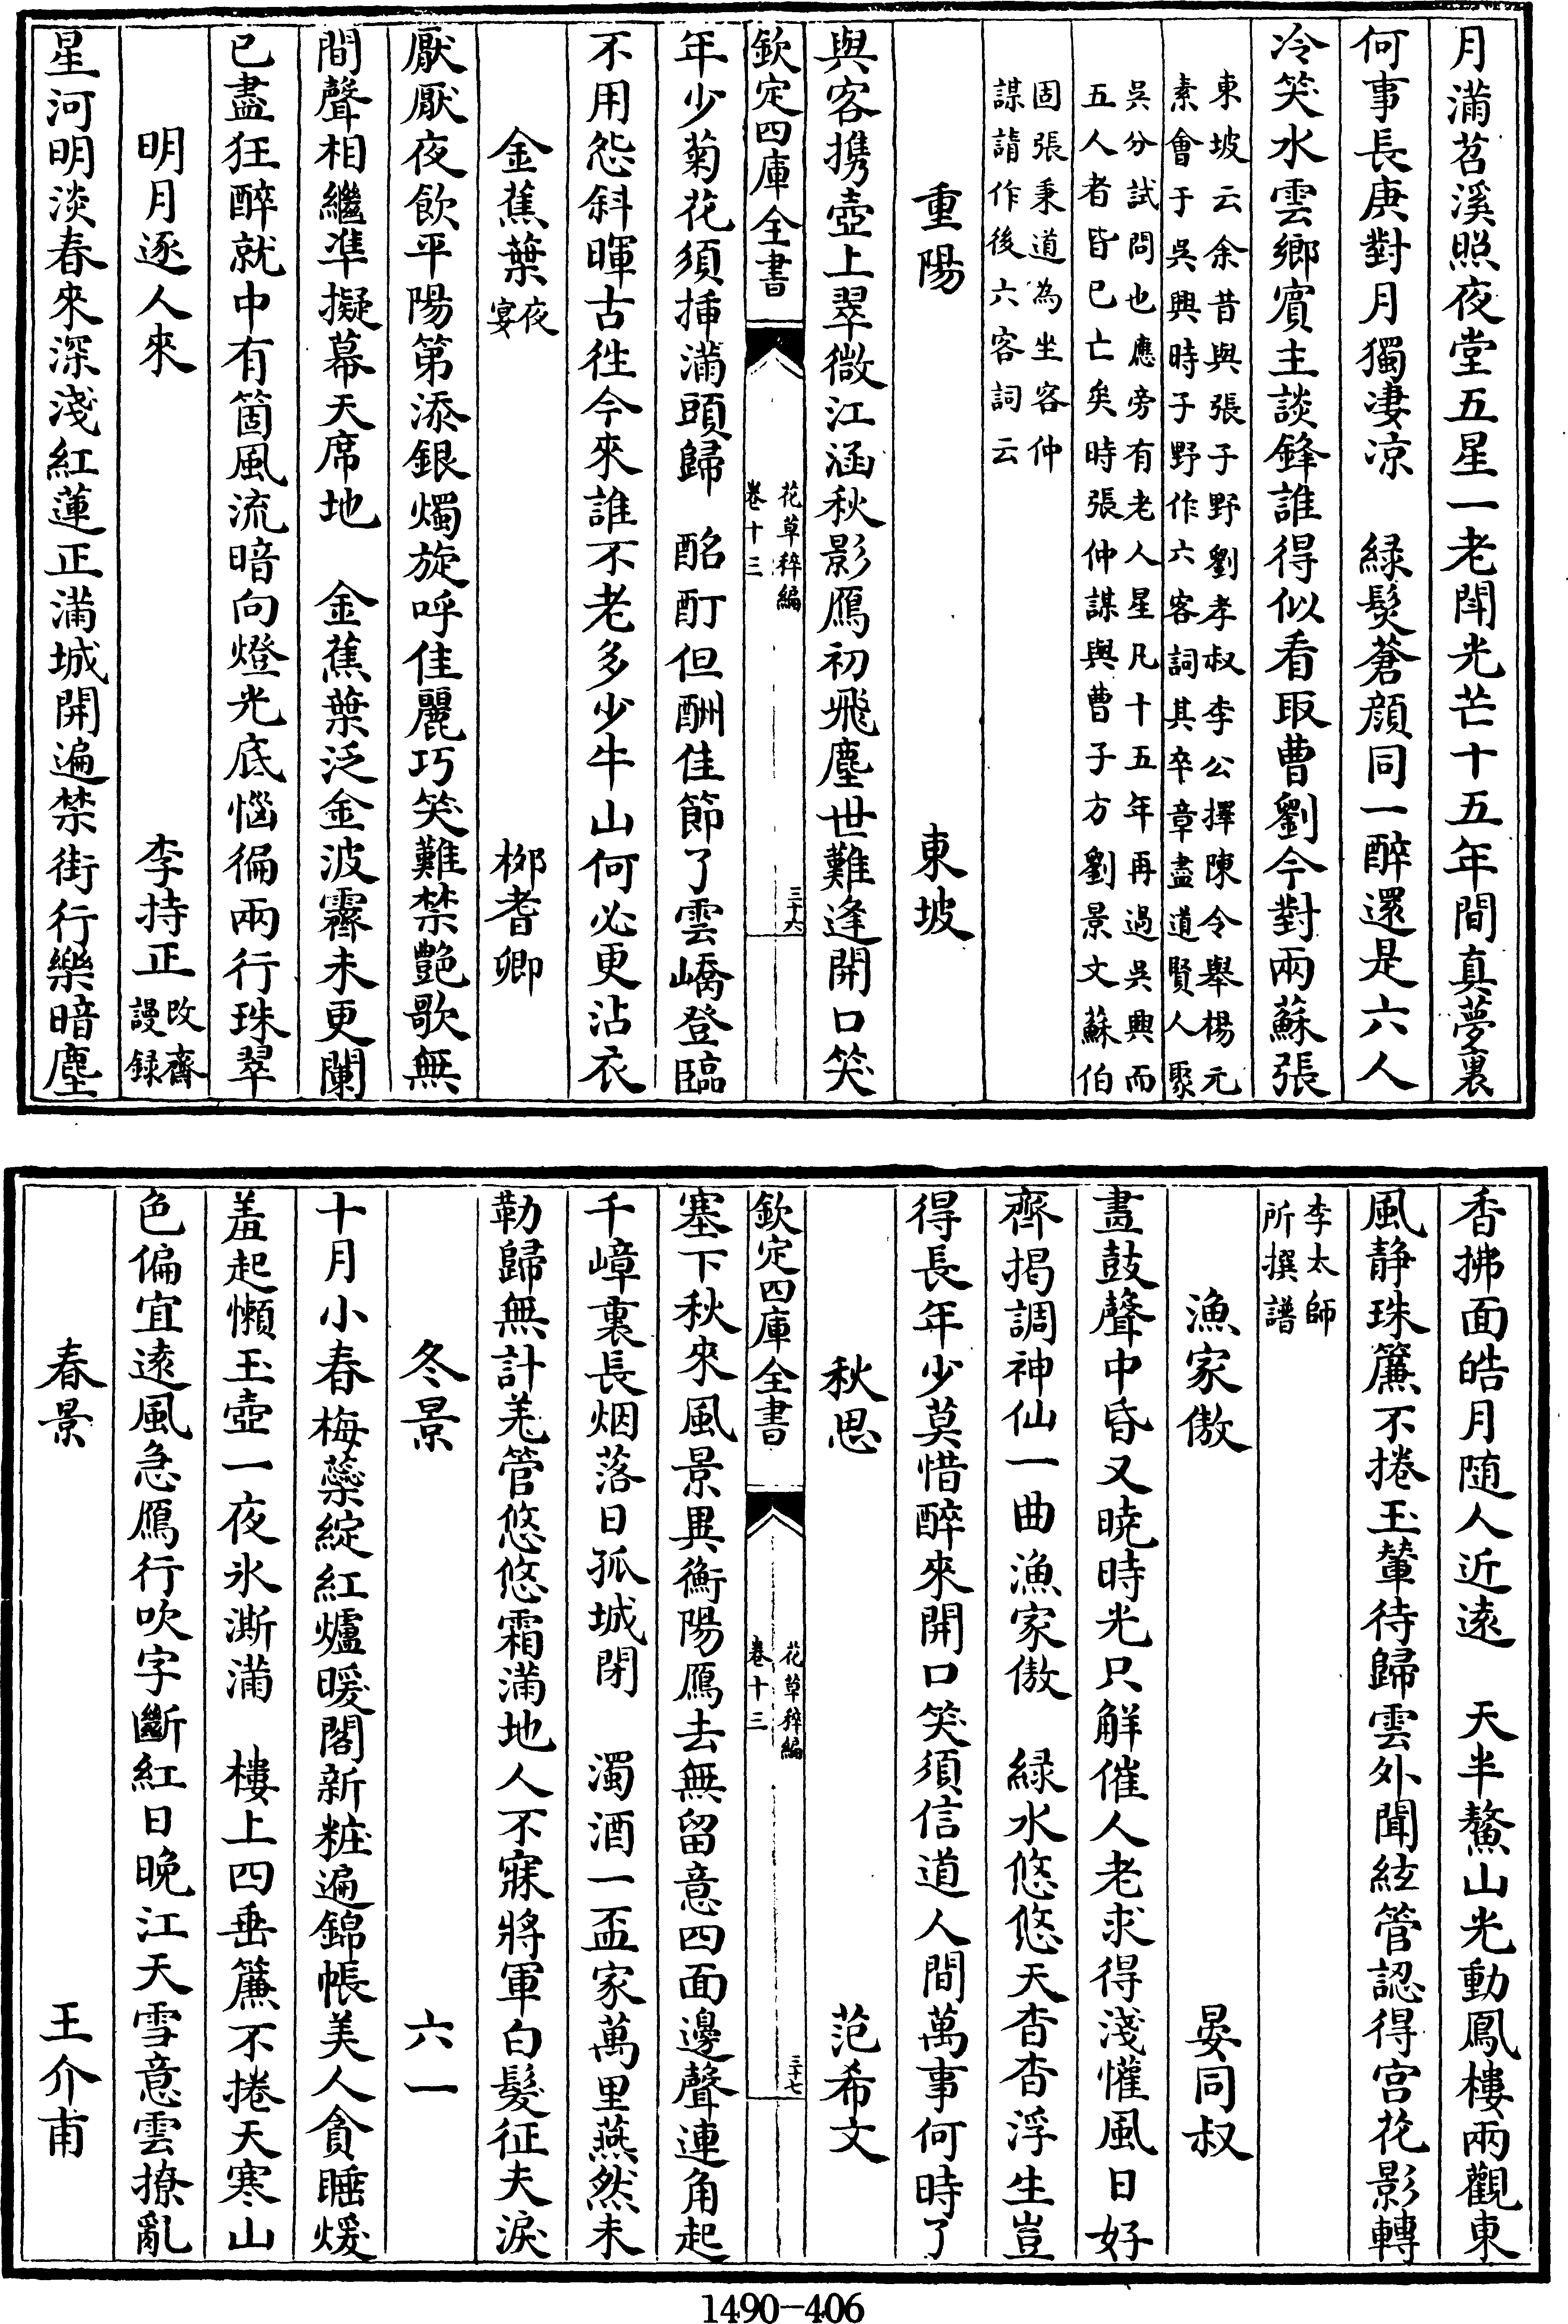 月滿苕溪照夜堂五星一老鬪光芒十五年間真夢裏
何事長庚對月獨凄凉　綠髮蒼顔同一醉還是六人
冷笑水雲鄉賔主談鋒誰得似看取曹劉今對兩蘇張
東坡云余昔與張子野劉孝叔李公擇陳令舉楊元
素會于吳興時子野作六客詞其卒章盡道賢人聚
吳分試問也應旁有老人星凡十五年再過吳興而
五人者皆已亡矣時張仲謀與曹子方劉景文蘇伯
固張秉道為坐客仲
謀請作後六客詞云
重陽　東坡
與客攜壺上翠微江涵秋影鴈初飛塵世難逢開口笑
欽定四庫全書　花草稡編　卷十三　三十六
年少菊花須揷滿頭歸　酩酊但酬佳節了雲嶠登臨
不用怨斜暉古往今來誰不老多少牛山何必更沾衣
金蕉葉夜宴　柳耆卿
厭厭夜飲平陽第添銀燭旋呼佳麗巧笑難禁艷歌無
間聲相繼凖擬幕天席地　金蕉葉泛金波霽未更闌
已盡狂醉就中有箇風流暗向燈光底惱徧兩行珠翠
明月逐人來　李持正改齋謾録
星河明淡春來深淺紅蓮正滿城開遍禁街行樂暗塵
香拂面皓月随人近逺　天半鰲山光動鳳樓兩觀東
風靜珠簾不捲玉輦待歸雲外聞絃管認得宫花影轉
李太師
所撰譜
漁家傲　晏同叔
畫鼓聲中昏又曉時光只解催人老求得淺懽風日好
齊揭調神仙一曲漁家傲　綠水悠悠天杳杳浮生豈
得長年少莫惜醉來開口笑須信道人間萬事何時了
秋思　范希文
欽定四庫全書　花草稡編　卷十三　三十七
塞下秋來風景異衡陽鴈去無留意四面邊聲連角起
千嶂裏長烟落日孤城閉　濁酒一盃家萬里燕然未
勒歸無計羌管悠悠霜滿地人不寐將軍白髮征夫淚
冬景　六一
十月小春梅蘂綻紅爐暖閣新粧遍錦帳美人貪睡煖
羞起懶玉壺一夜氷澌滿　樓上四垂簾不捲天寒山
色偏宜逺風急鴈行吹字斷紅日晚江天雪意雲撩亂
春景　王介甫
1490-406